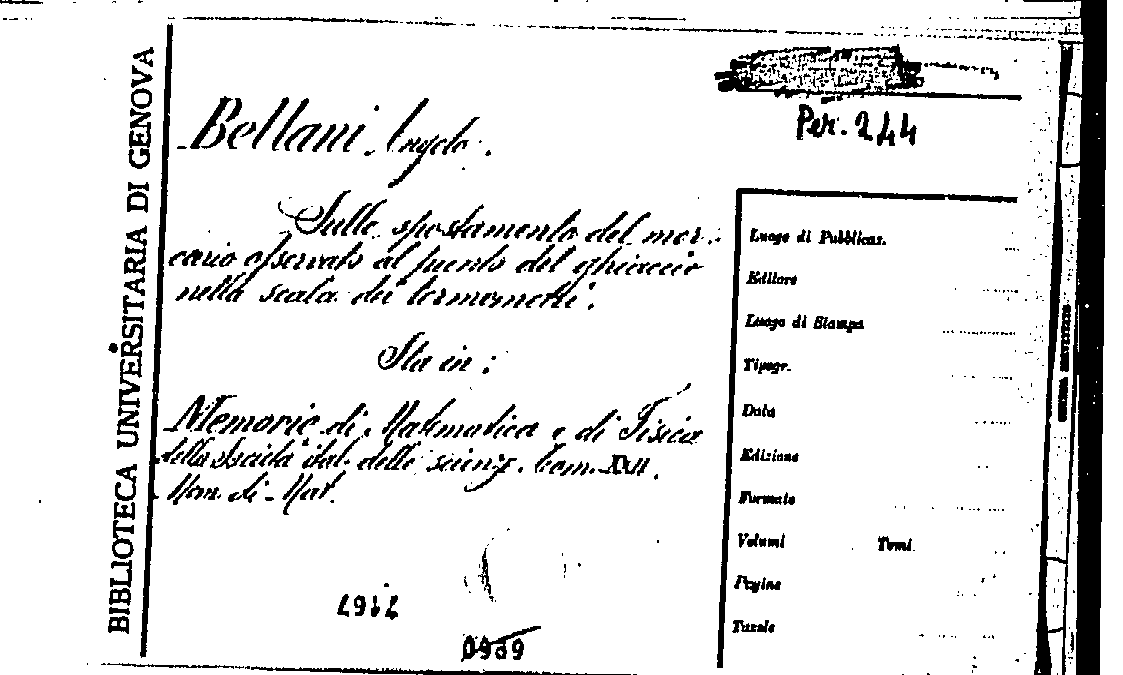 BIBLIOTECA UNIVERSITARIA DI GENOVA
Per. 244
Bellani Angelo.
Sullo spostamento del mer-
curio osservato al punto del ghiaccio
nella scala dei termometri.
Sta in:
Memorie di Matematica e di Fisica
della Società ital. delle scienze. Tom. XXII.
Mem. di Mat.
Luogo di Pubblicaz.
Editore
Luogo di Stampa
Tipogr.
Data
Edizione
Formato
Volumi Tomi
Pagine
Tavole